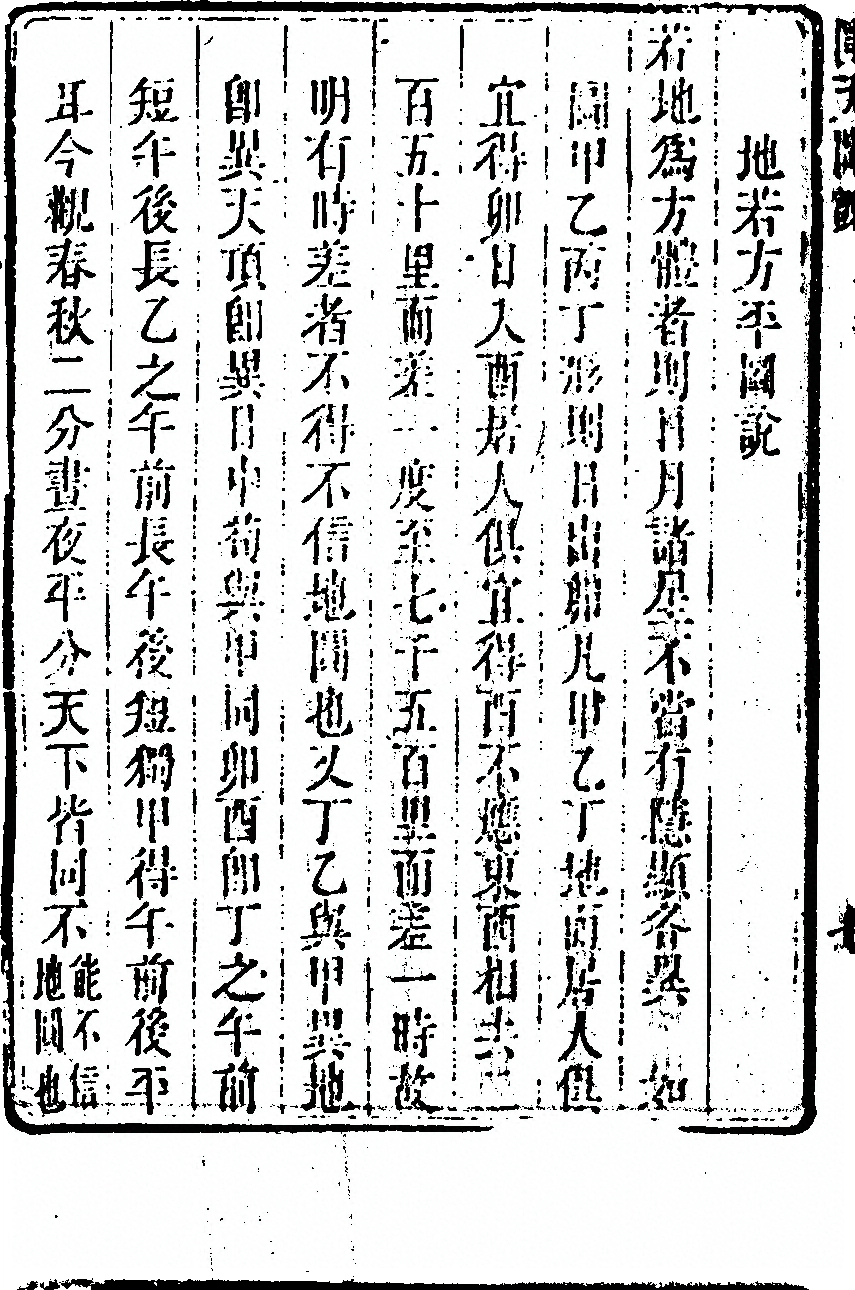 地若方平圖說
若地爲方體者則日月諸星不當有隱顯各異 如
圖甲乙丙丁形則日出卯凡甲乙丁地面居人俱
宜得卯日入酉居人俱宜得酉不應東西相去二
百五十里而差一度至七千五百里而差一時故
明有時差者不得不信地圓也又丁乙與甲異地
卽異天頂卽異日中苟與甲同卯酉卽丁之午前
短午後長乙之午前長午後短獨甲得午前後平
耳今觀春秋二分晝夜平分天下皆同不能不信
地圓也